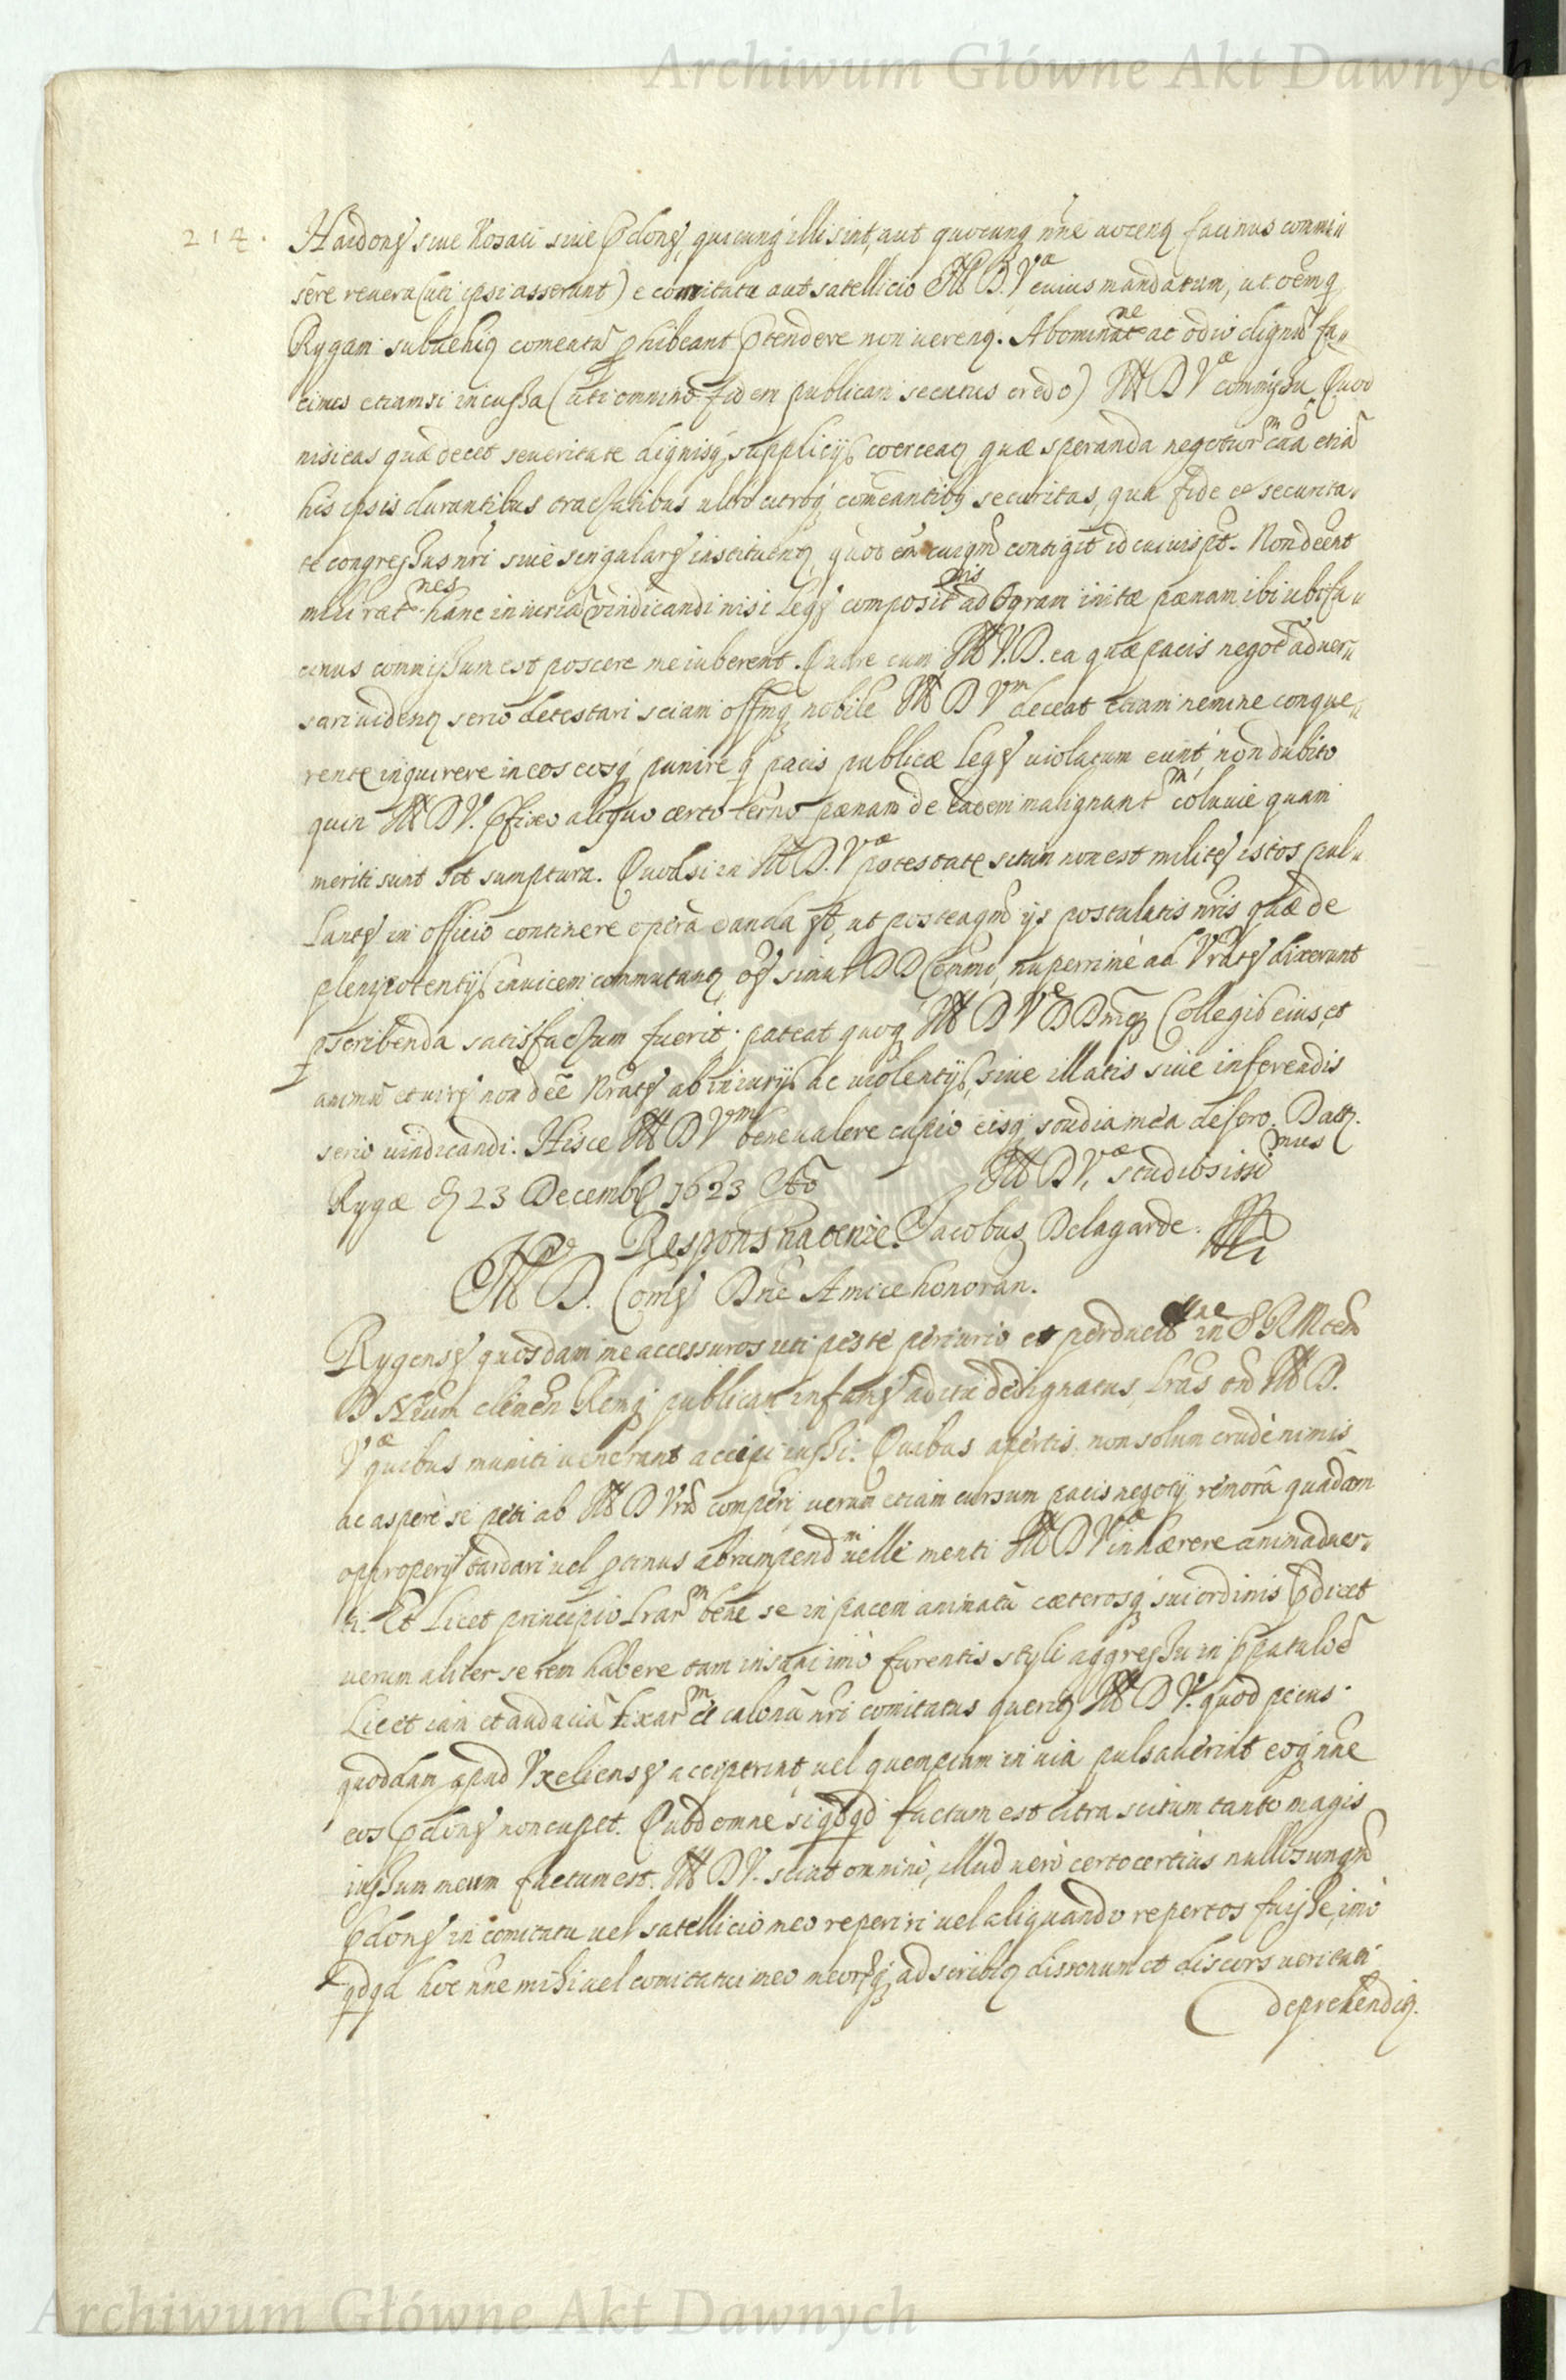 Archiwum Główne Akt Dawnych
214.
Haidonę siue Kosaci siue Pdonę, quicunq illi sint, aut quocunq nñe uocenť facinus commi„
sêre reuera (uti ipsi asserunt) e comitatu aut satellicio Ill D. Vᵃ cuius mandatum, ut oẽm q
Rygam subuehiť comeatũ phibeant Ptendere non uerenť. Abominatⁿᵉ ac odio dignũ fa„
cinus etiamsi iniussa (uti omninò fidem publicam secutus credo) Ill D Vᵃᵉ commissu. Quod
nisi eas quã decet seueritate dignisq supplicijs coerceať quae speranda negotiorᵐ cũa etiã
his ipsis durantibus tractatibus ultrò citroq comeantibq securitas, qua fide et securita„
te congressus nři siue singularę instituenť, quod eñ cuiqm̃ contigit id cuiuis pt. Non deẽnt
mihi ratⁿᵉˢ hanc iniuriã uindicandi nisi legę compositⁿⁱˢ ad Ogram initae paenam ibi ubi fa„
cinus commissum est poscere me iuberent. Quare cum Ill V. D. ea quae pacis negot̃ aduer„
sari uidenť serio detestari sciam offmq nobile Ill D Vᵐ deceat etiam nemine conque„
rente inquirere in eos eosq punire q pacis publicae legę uiolatum eunt, non dubito
quin Ill D V. Pfixo aliquo certo terño paenam de eadem malignantᵐ coluuie quam
meriti sunt sit sumptura. Quod si in Ill D. Vᵃᵉ potestate situm non est militę istos pal„
lantę in officio continere opera danda ẽt, ut posteaqm̃ ijs postulatis nřis quae de
plenipotentijs inuicem commutanť oę simul DD Com̃i, nuperrimè ad Vrãtę dixerunt
pscribenda satisfactum fuerit, pateat quoq Ill D Vᵃᵉ DDnisq Collegis eius, et
animũ et uirę non deẽ Nratę ab iniurijs ac uiolentijs, siue illatis siue inferendis
serio uindicandi. Hisce Ill D Vᵐ bene ualere cupio eisq studia mea defero. Dať.
Rygae d 23 Decembř 1623 Ao
Ill D V. ᵃᵉ studiosissiᵐᵘˢ
Respons na tenże. Jacobus Delagarde.
Ill D. Comę Dñe Amice honoran.
Rygensę quosdam me accessuros uti peste periurio et perduelliⁿᵉ in S R M tem
D Ñrum clemen Remq publicam infamę aditu dedignatus, lrãs tñ Ill D.
Vᵃᵉ quibus muniti uenerant accipi iussi. Quibus apertis non solum crudè nimis
ac asperè se peti ab Ill D Vrã comperi uerum etiam cursum pacis negocij remorâ quadam
opproperijs tardari uel penitus abrumpendᵐ uelle menti Ill D Vᵃᵉ inhaerere animaduer„
ti. Et licet principio lrarᵐ bene se in pacem animatũ caeterosq sui ordinis Pdicet
uerum aliter se rem habere tam insani imò furentis styli aggressu in ppatulo ẽ
Licet iam et audaciã lixarᵐ et calonũ nři comitatus queriť Ill D V. quòd pecus
quoddam apud Vxelensę acceperint, uel quempiam in uia pulsauerint eoq nñe
eos Pdonę noncupet. Quod omne siqdqd factum est citra scitum tanto magis
iussum meum factum est. Ill D V. sciat omninò, illud uerò certo certius nullos unqm̃
Pdonę in comitatu uel satellicio meo reperiri uel aliquando repertos fuisse, imò
qdqd hoc nñe mihi uel comitatui meo meorũq adscribiť dissonum et discors ueritati
deprehendiť.
Archiwum Główne Akt Dawnych